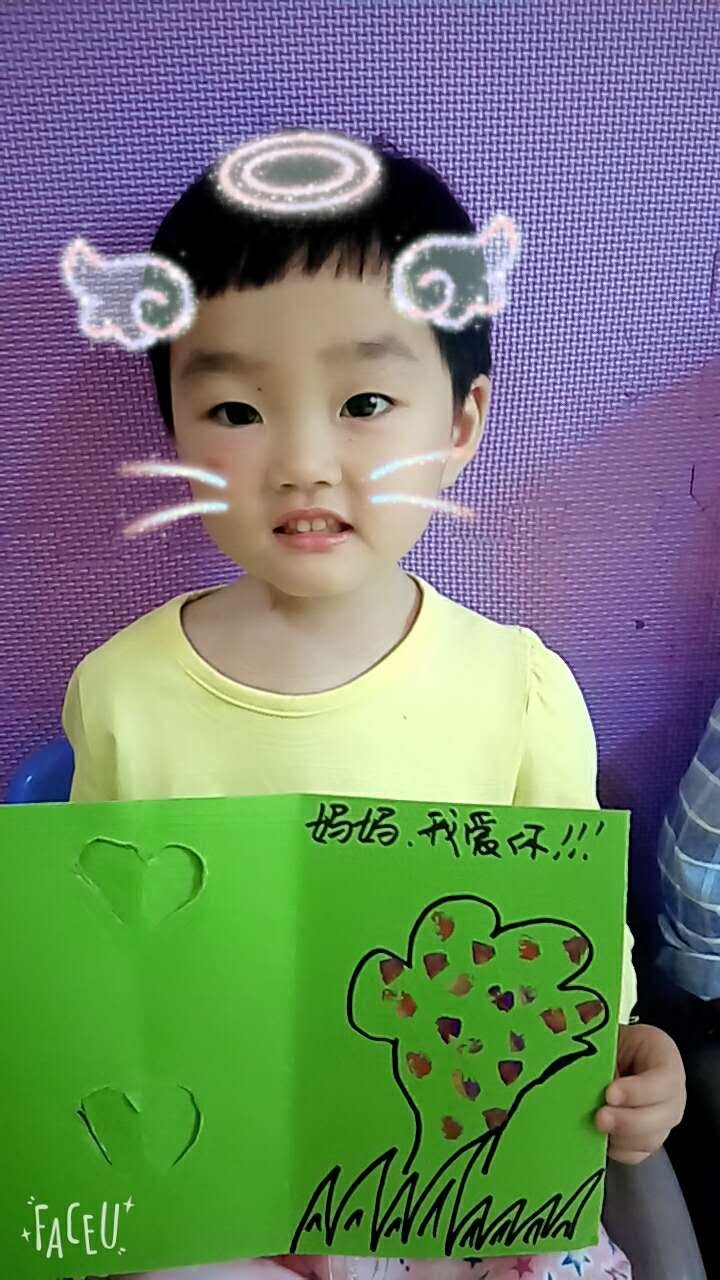 妈妈.我爱你!!!
FACEU